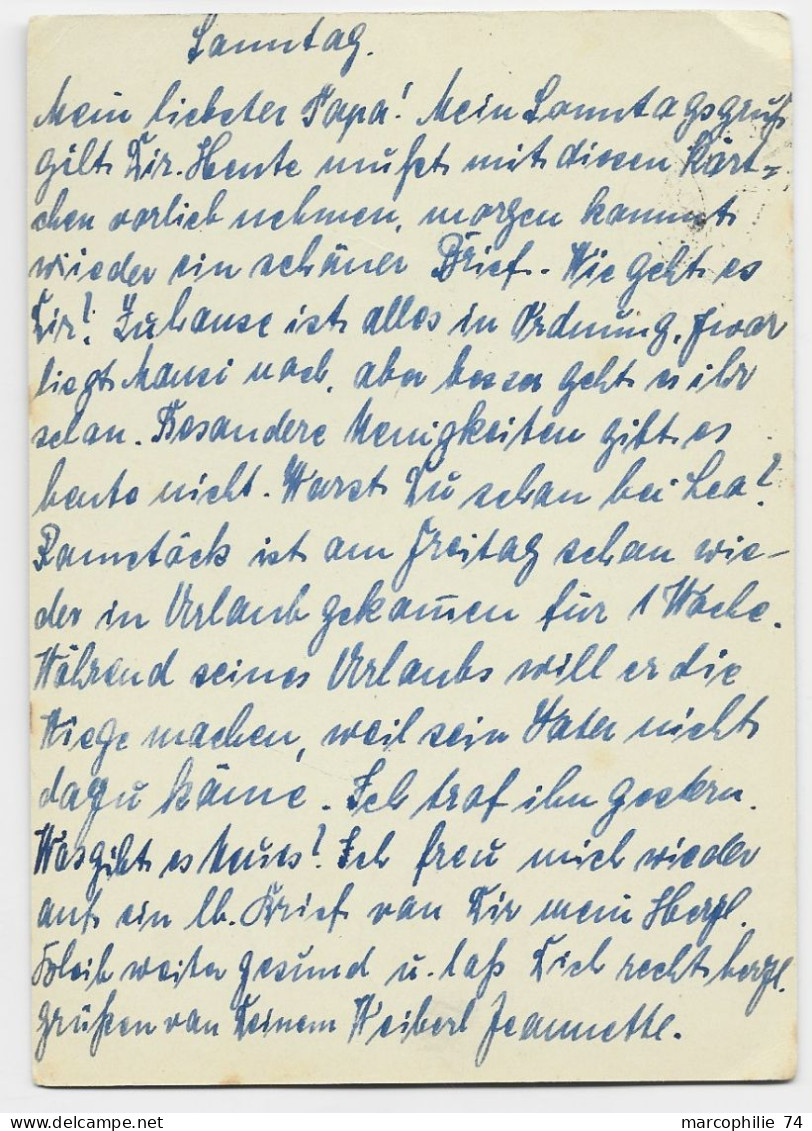 Sonntag.
Mein liebster Papa! Mein Sonntagsgruß
gilt Dir. Heute mußt mit diesen Kärt-
chen vorlieb nehmen, morgen kommt
wieder ein schöner Brief. Wie geht es
Dir? Zuhause ist alles in Ordnung, zwar
liegt Mausi noch, aber besser geht es ihr
schon. Besondere Neuigkeiten gibt es
heute nicht. Warst Du schon bei Lea?
ist am Freitag schon wie-
der in Urlaub gekommen für 1 Woche.
Während seines Urlaubs will er die
Wiege machen, weil sein Vater nicht
dazu käme. Ich traf ihn gestern.
Was gibt es Neues? Ich freu mich wieder
auf ein lb. Brief von Dir mein Herzl.
Bleib weiter gesund u. laß Dich recht herzl.
grüßen von Deinem Weiberl Jeannette.
marcophilie 74